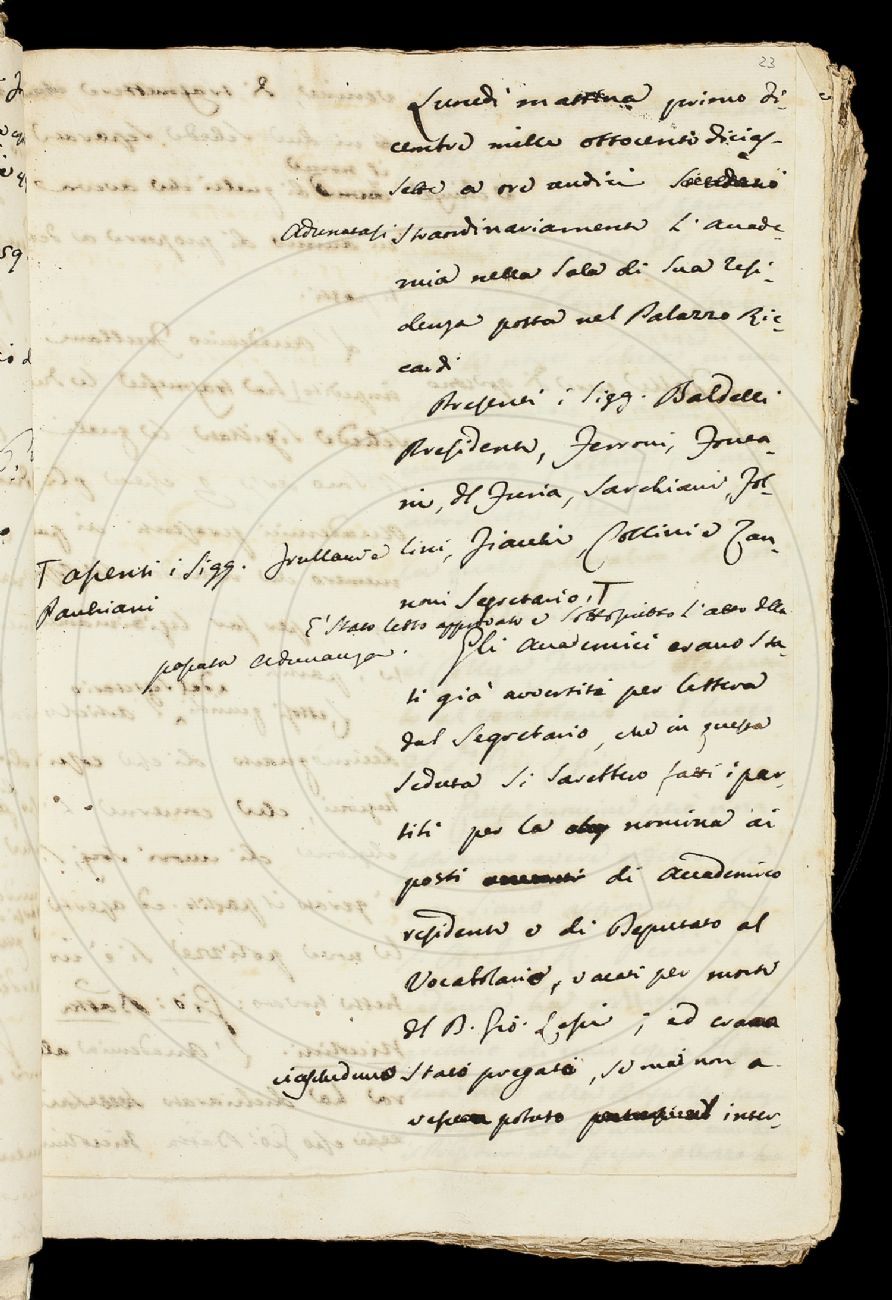 23
Lunedì mattina primo di-
cembre mille ottocento dicias-
sette a ore undici
Adunatasi straordinariamente l'Accade-
mia nella sala di sua resi-
denza posta nel Palazzo Ric-
cardi
Presenti i Sigg. Baldelli
Presidente, Ferroni, Fonta-
ni, del Furia, Sarchiani, Fol-
lini, Fiacchi, Collini e Zan-
noni Segretario, T
T assenti i Sigg. Frullani e
Pauchiani
È stato letto approvato e sottoscritto l'atto della
passata adunanza.
Gli Accademici erano sta-
ti già avvertiti per lettera
dal Segretario, che in questa
seduta si sarebbero fatti i par-
titi per la nomina ai
posti di Accademico
residente e di Deputato al
Vocabolario, vacati per morte
del B. Gio. Lessi; ed era
ciascheduno stato pregato, se mai non a-
vesse potuto inter-